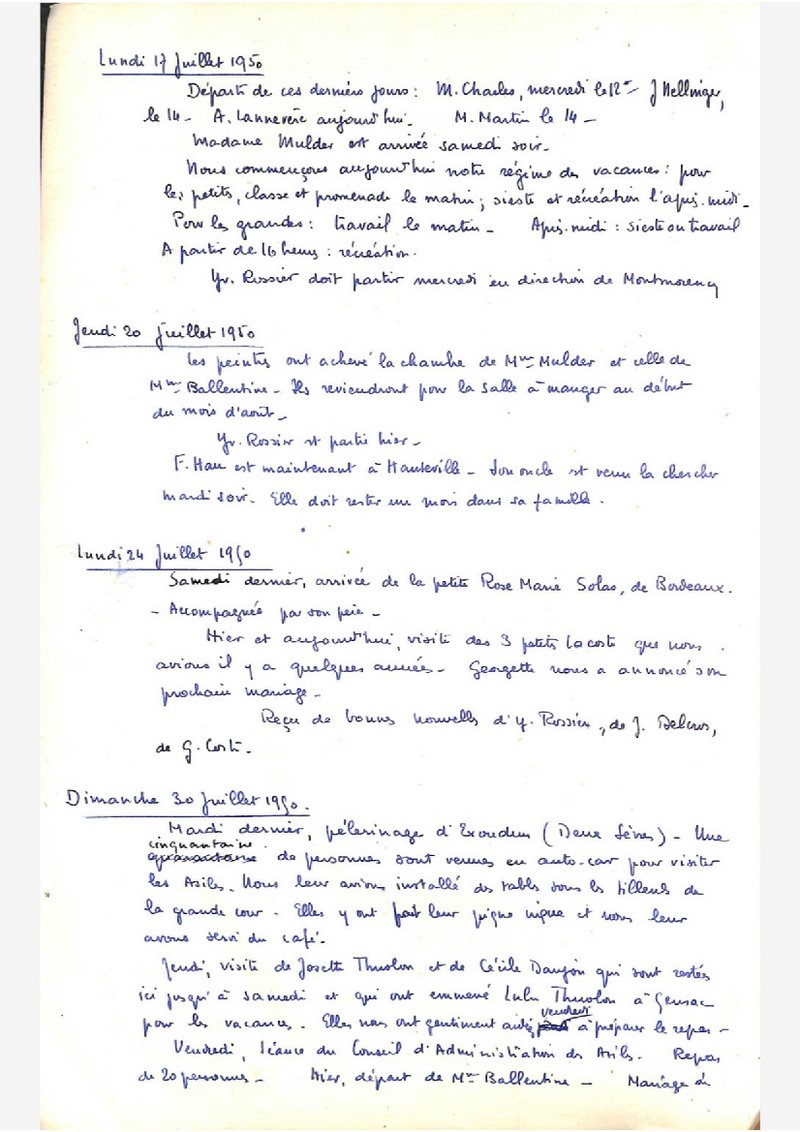 Lundi 17 Juillet 1950
Départs de ces derniers jours : M. Charles, mercredi le 12 - J Hellinger,
le 14 - A. Lannevère aujourd'hui. M. Martin le 14 -
Madame Mulder est arrivée samedi soir.
Nous commençons aujourd'hui notre régime des vacances : pour
les petits, classe et promenade le matin ; sieste et récréation l'après-midi -
Pour les grandes : travail le matin - Après-midi : sieste ou travail
A partir de 16 heures : récréation.
Yv. Rossier doit partir mercredi en direction de Montmorency
Jeudi 20 Juillet 1950
Les peintres ont achevé la chambre de Mme Mulder et celle de
Mme Ballentine - Ils reviendront pour la salle à manger au début
du mois d'août -
Yv. Rossier est partie hier -
F. Hau est maintenant à Hauteville - Son oncle est venu la chercher
mardi soir. Elle doit rester un mois dans sa famille.
Lundi 24 Juillet 1950
Samedi dernier, arrivée de la petite Rose Marie Solas, de Bordeaux.
- Accompagnée par son père -
Hier et aujourd'hui, visite des 3 petits Lacoste que nous
avions il y a quelques années - Georgette nous a annoncé son
prochain mariage -
Reçu de bonnes nouvelles d'Y. Rossier, de J. Delcros,
de G. Costi.
Dimanche 30 Juillet 1950.
Mardi dernier, pélerinage d'Exoudun (Deux Sèvres) - Une
cinquantaine
de personnes sont venues en auto-car pour visiter
les Asiles. Nous leur avions installé des tables sous les tilleuls de
la grande cour. Elles y ont fait leur pique nique et nous leur
avons servi du café.
Jeudi, visite de Josette Thuolon et de Cécile Daujon qui sont restées
ici jusqu'à samedi et qui ont emmené Lulu Thuolon à Gensac
vendredi
pour les vacances. Elles nous ont gentiment aidés à préparer le repas -
Vendredi, séance du Conseil d'Administration des Asiles. Repas
de 20 personnes - Hier, départ de Mme Ballentine - Mariage de